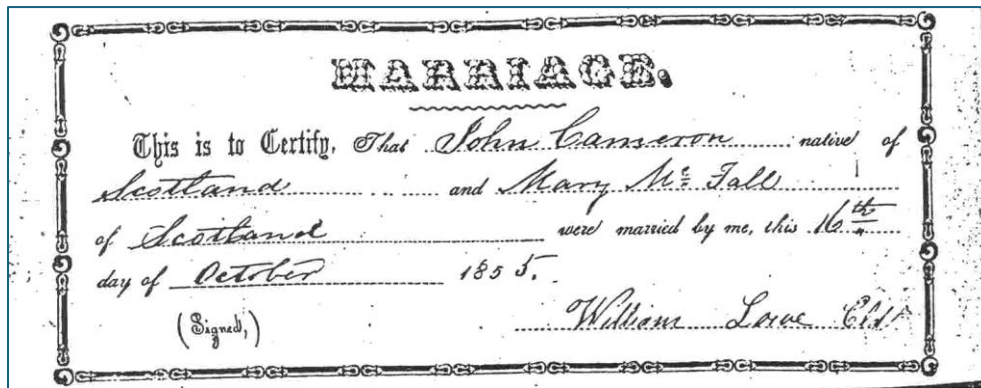 MARRIAGE.
This is to Certify, That John Cameron native of
Scotland and Mary Mc Fall
of Scotland were married by me, this 16th
day of October 1855.
(Signed,) William Lowe Eld